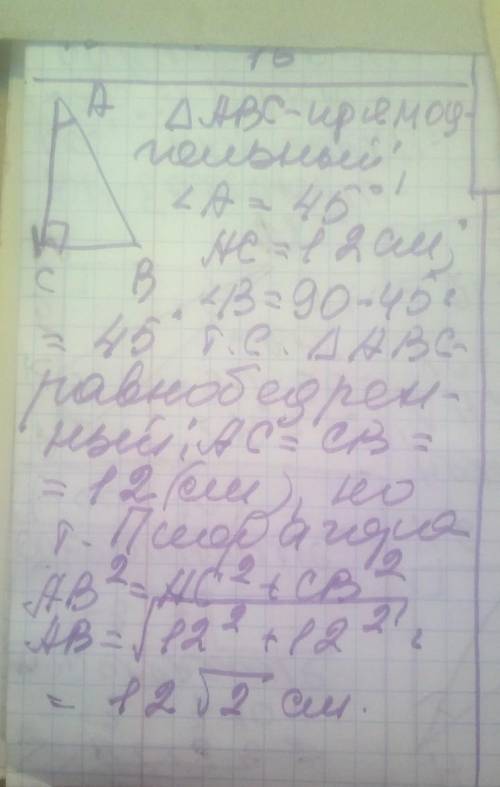 16
A
△ABC-прямоу-
гольный;
∠A = 45°;
AC = 12 см;
C B
∠B = 90 - 45 =
= 45° т.с. △ABC-
равнобедрен-
ный; AC = CB =
= 12 (см), по
т. Пифагора
AB² = AC² + CB²
AB = √12² + 12² =
= 12√2 см.